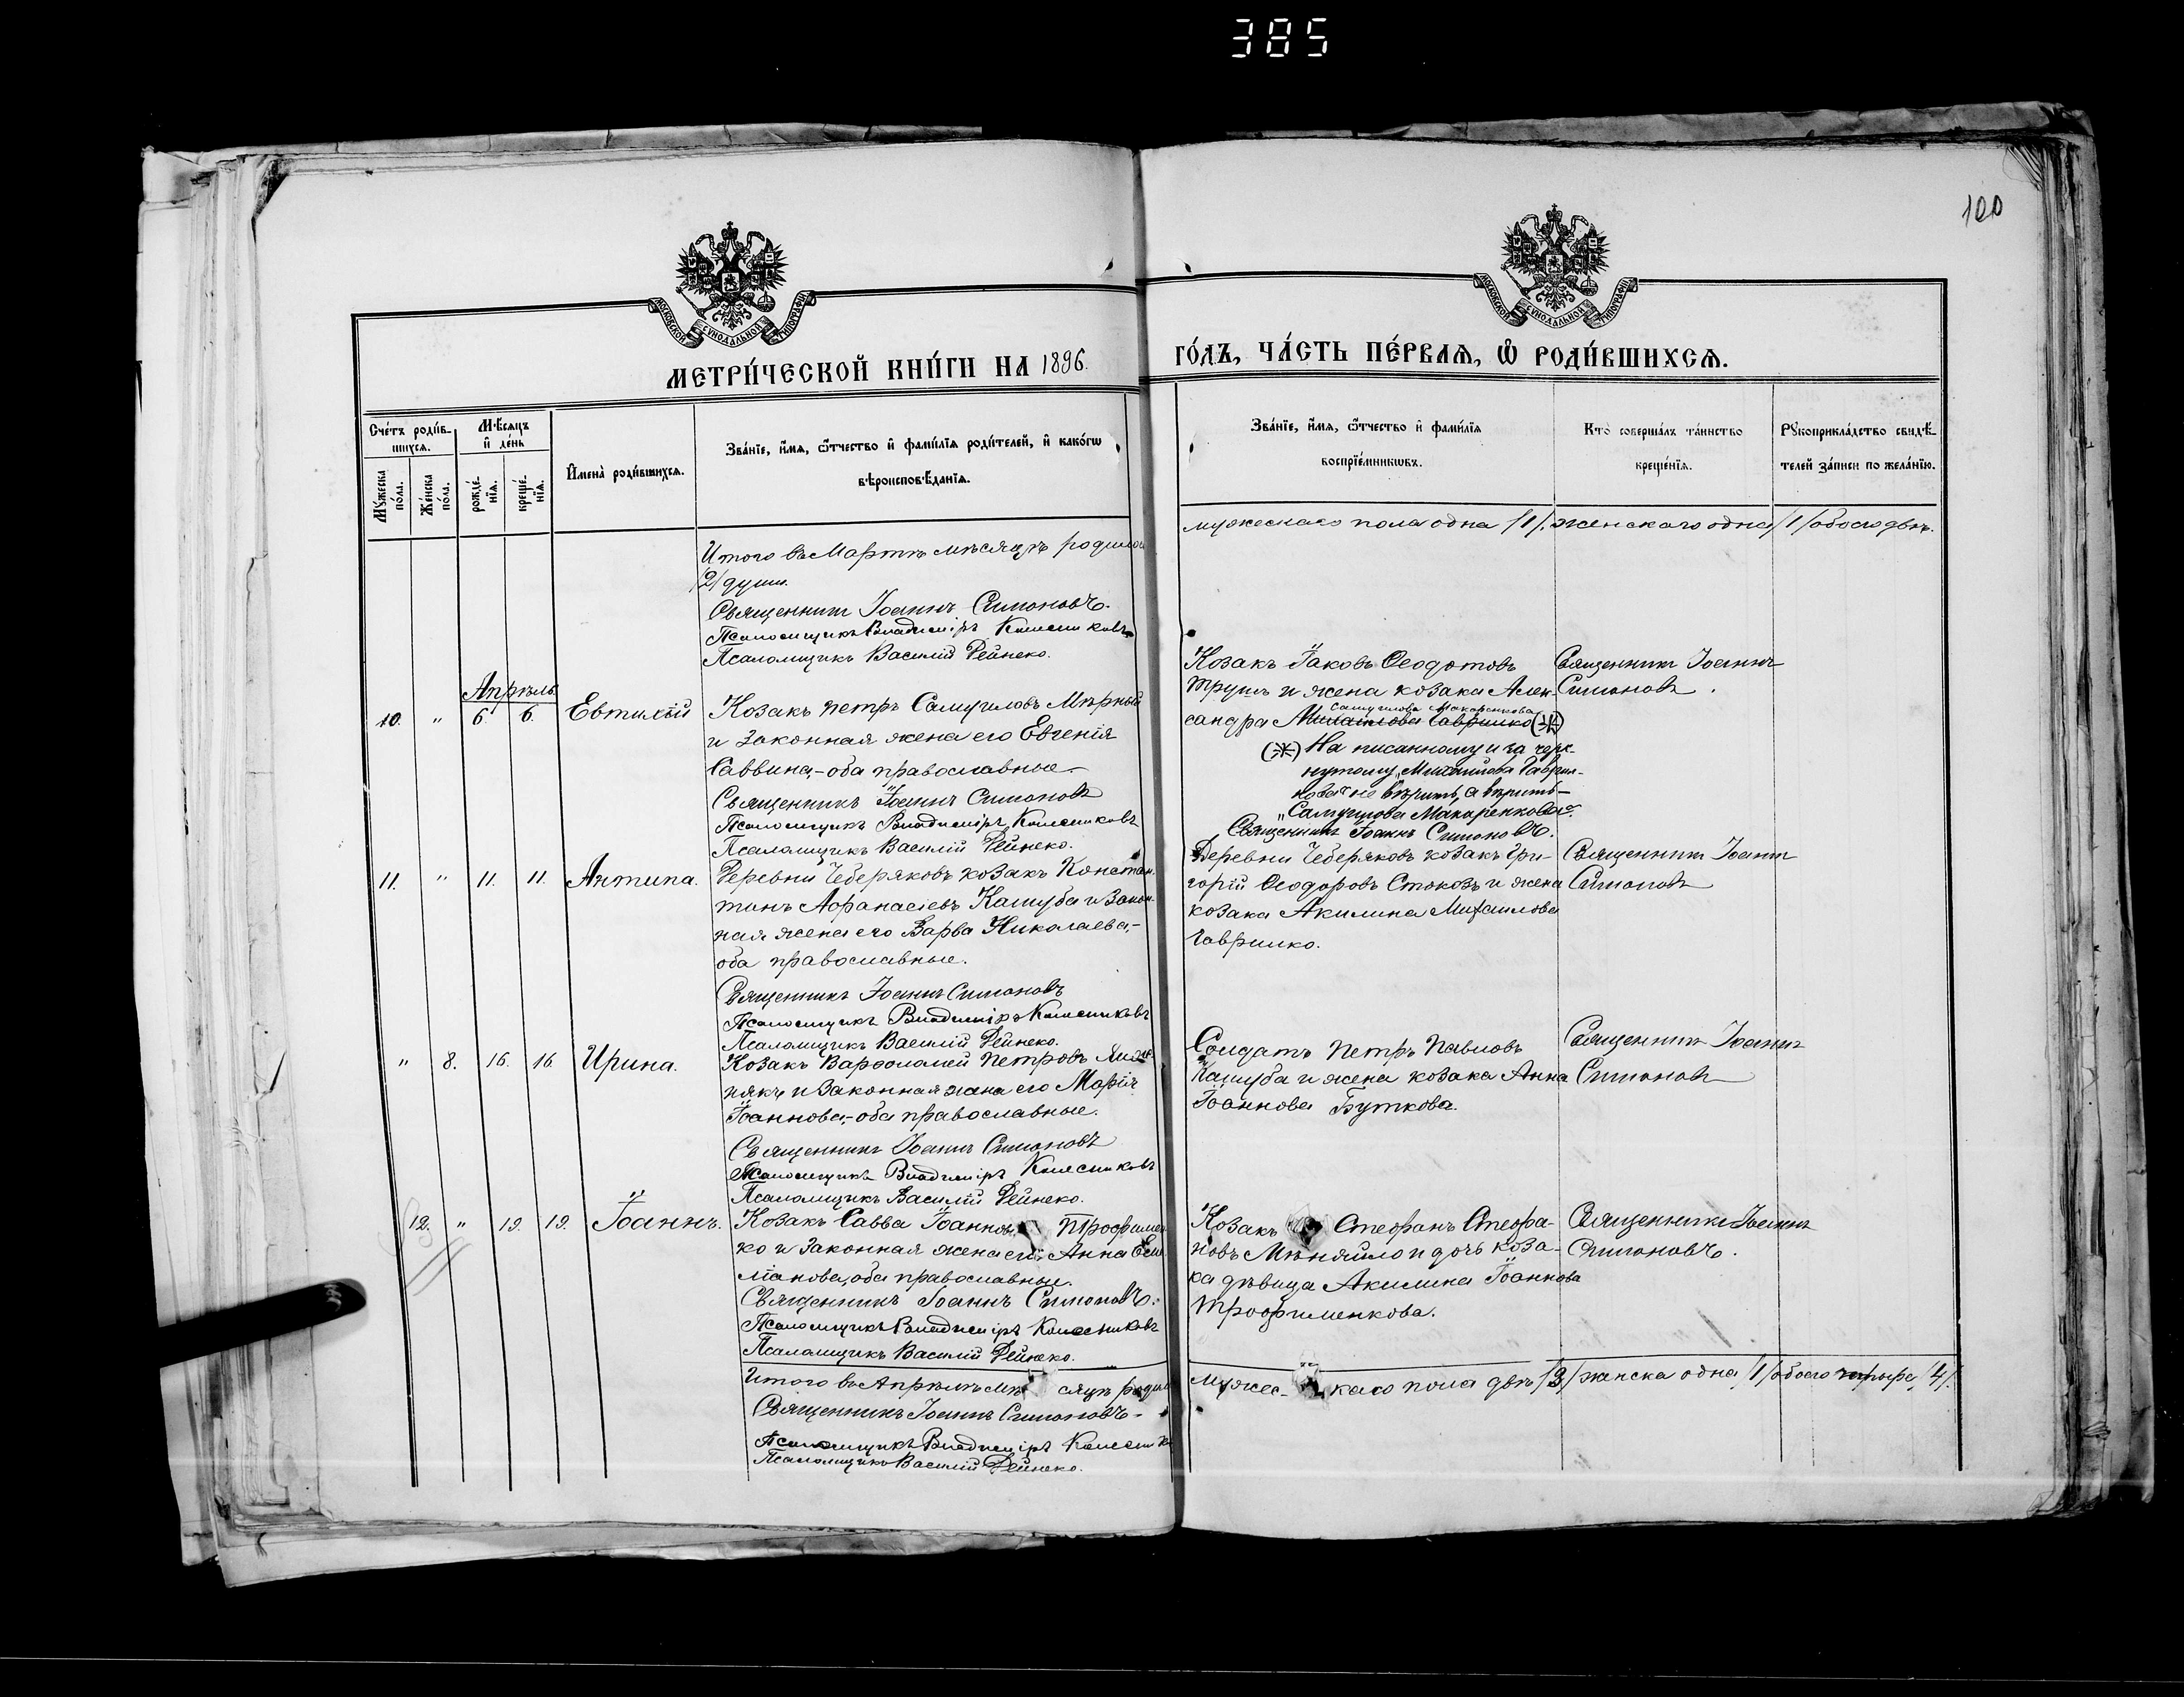 385
100
МОСКОВСКОЙ СѴНОДАЛЬНОЙ ТИПОГРАФІИ
МОСКОВСКОЙ СѴНОДАЛЬНОЙ ТИПОГРАФІИ
МЕТРИ́ЧЕСКОЙ КНИ́ГИ НА 1896.
ГО́ДЪ, ЧА́СТЬ ПЕ́РВАѦ, Ѡ҆ РОДИ́ВШИХСѦ.
Сче́тъ роди́в-
шихсѧ.
Му́жеска по́ла.
Же́нска по́ла.
Мѣ́сѧцъ
и҆ де́нь
рожде́-
нїѧ.
креще́-
нїѧ.
И҆мена̀ роди́вшихсѧ.
Зва́нїе, и҆́мѧ, ѻ҆́тчество и҆ фами́лїѧ роди́телей, и҆ како́гѡ
вѣроисповѣ́данїѧ.
Зва́нїе, и҆́мѧ, ѻ҆́тчество и҆ фами́лїѧ
воспрїе́мникѡвъ.
Кто̀ соверша́лъ та́инство
креще́нїѧ.
Рꙋкоприкла́дство свидѣ́-
телей за́писи по жела́нїю.
Итого въ Мартѣ мѣсяцѣ родилось
/2/ души.
мужескаго пола одна /1/, женскаго одна /1/ обоего двѣ.
Священникъ Іоаннъ Симоновъ.
Псаломщикъ Владиміръ Колесниковъ
Псаломщикъ Василій Рейнеко.
Апрѣль
10. " 6. 6. Евтихій
Козакъ Петръ Самуиловъ Мѣрный
и законная жена его Евгенія
Саввина,- оба православные.
Священникъ Іоаннъ Симоновъ
Псаломщикъ Владиміръ Колесниковъ
Псаломщикъ Василій Рейнеко.
Козакъ Іаковъ Ѳеодотовъ
Трушъ и жена козака Алек-
Самуилова Макаренкова
сандра Михаилова Гаврилко (※)
(※) На писанному и за черк-
нутому „Михаилова Гаврил-
кова" не вѣрить, а вѣрить-
„Самуилова Макаренкова".
Священникъ Іоаннъ Симоновъ.
Священникъ Іоаннъ
Симоновъ.
11. " 11. 11. Антипа.
Деревни Чеберяковъ козакъ Констан-
тинъ Аѳанасіевъ Кашуба и Закон-
ная жена его Варва Николаева,-
оба православные.
Священникъ Іоаннъ Симоновъ
Псаломщикъ Владиміръ Колесниковъ
Псаломщикъ Василій Рейнеко.
Деревни Чеберяковъ козакъ Гри-
горій Ѳеодоровъ Стоковъ и жена
козака Акилина Михаилова
Гаврилко.
Священникъ Іоаннъ
Симоновъ
" 8. 16. 16. Ирина.
Козакъ Варѳоломей Петровъ
някъ и Законная жена его Марія
Іоаннова,- оба православные.
Священникъ Іоаннъ Симоновъ
Псаломщикъ Владиміръ Колесниковъ
Псаломщикъ Василій Рейнеко.
Солдатъ Петръ Павловъ
Кашуба и жена козака Анна
Іоаннова Буткова.
Священникъ Іоаннъ
Симоновъ
12. " 19. 19. Іоаннъ.
Козакъ Савва Іоанновъ Трофимен-
ко и Законная жена его Анна Еми-
ліанова, оба православные.
Священникъ Іоаннъ Симоновъ.
Псаломщикъ Владиміръ Колесниковъ
Псаломщикъ Василій Рейнеко.
Козакъ Стефанъ Стефа-
новъ Мѣняйло и дочь коза-
ка дѣвица Акилина Іоаннова
Трофименкова.
Священникъ Іоаннъ
Симоновъ.
Итого въ Апрѣлѣ мѣсяцѣ родил
мужес-каго пола двѣ /3/ женска одна /1/ обоего четыре /4/.
Священникъ Іоаннъ Симоновъ-
Псаломщикъ Владиміръ Колесник
Псаломщикъ Василій Рейнеко.